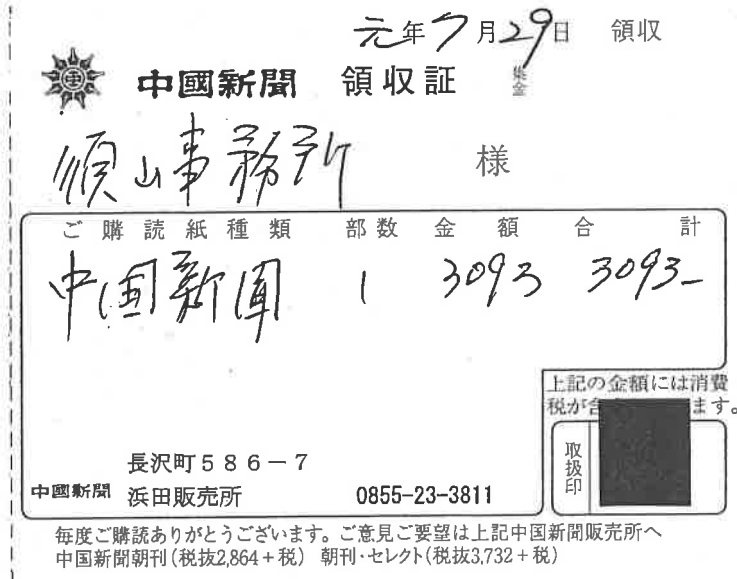 元年7月29日 領収
中國新聞 領収証 集金
須山事務所 様
ご購読紙種類 部数 金額 合計
中国新聞 1 3093 3093-
上記の金額には消費
税が含 ます。
取扱印
長沢町586-7
中國新聞 浜田販売所 0855-23-3811
毎度ご購読ありがとうございます。ご意見ご要望は上記中国新聞販売所へ
中国新聞朝刊(税抜2,864+税) 朝刊・セレクト(税抜3,732+税)